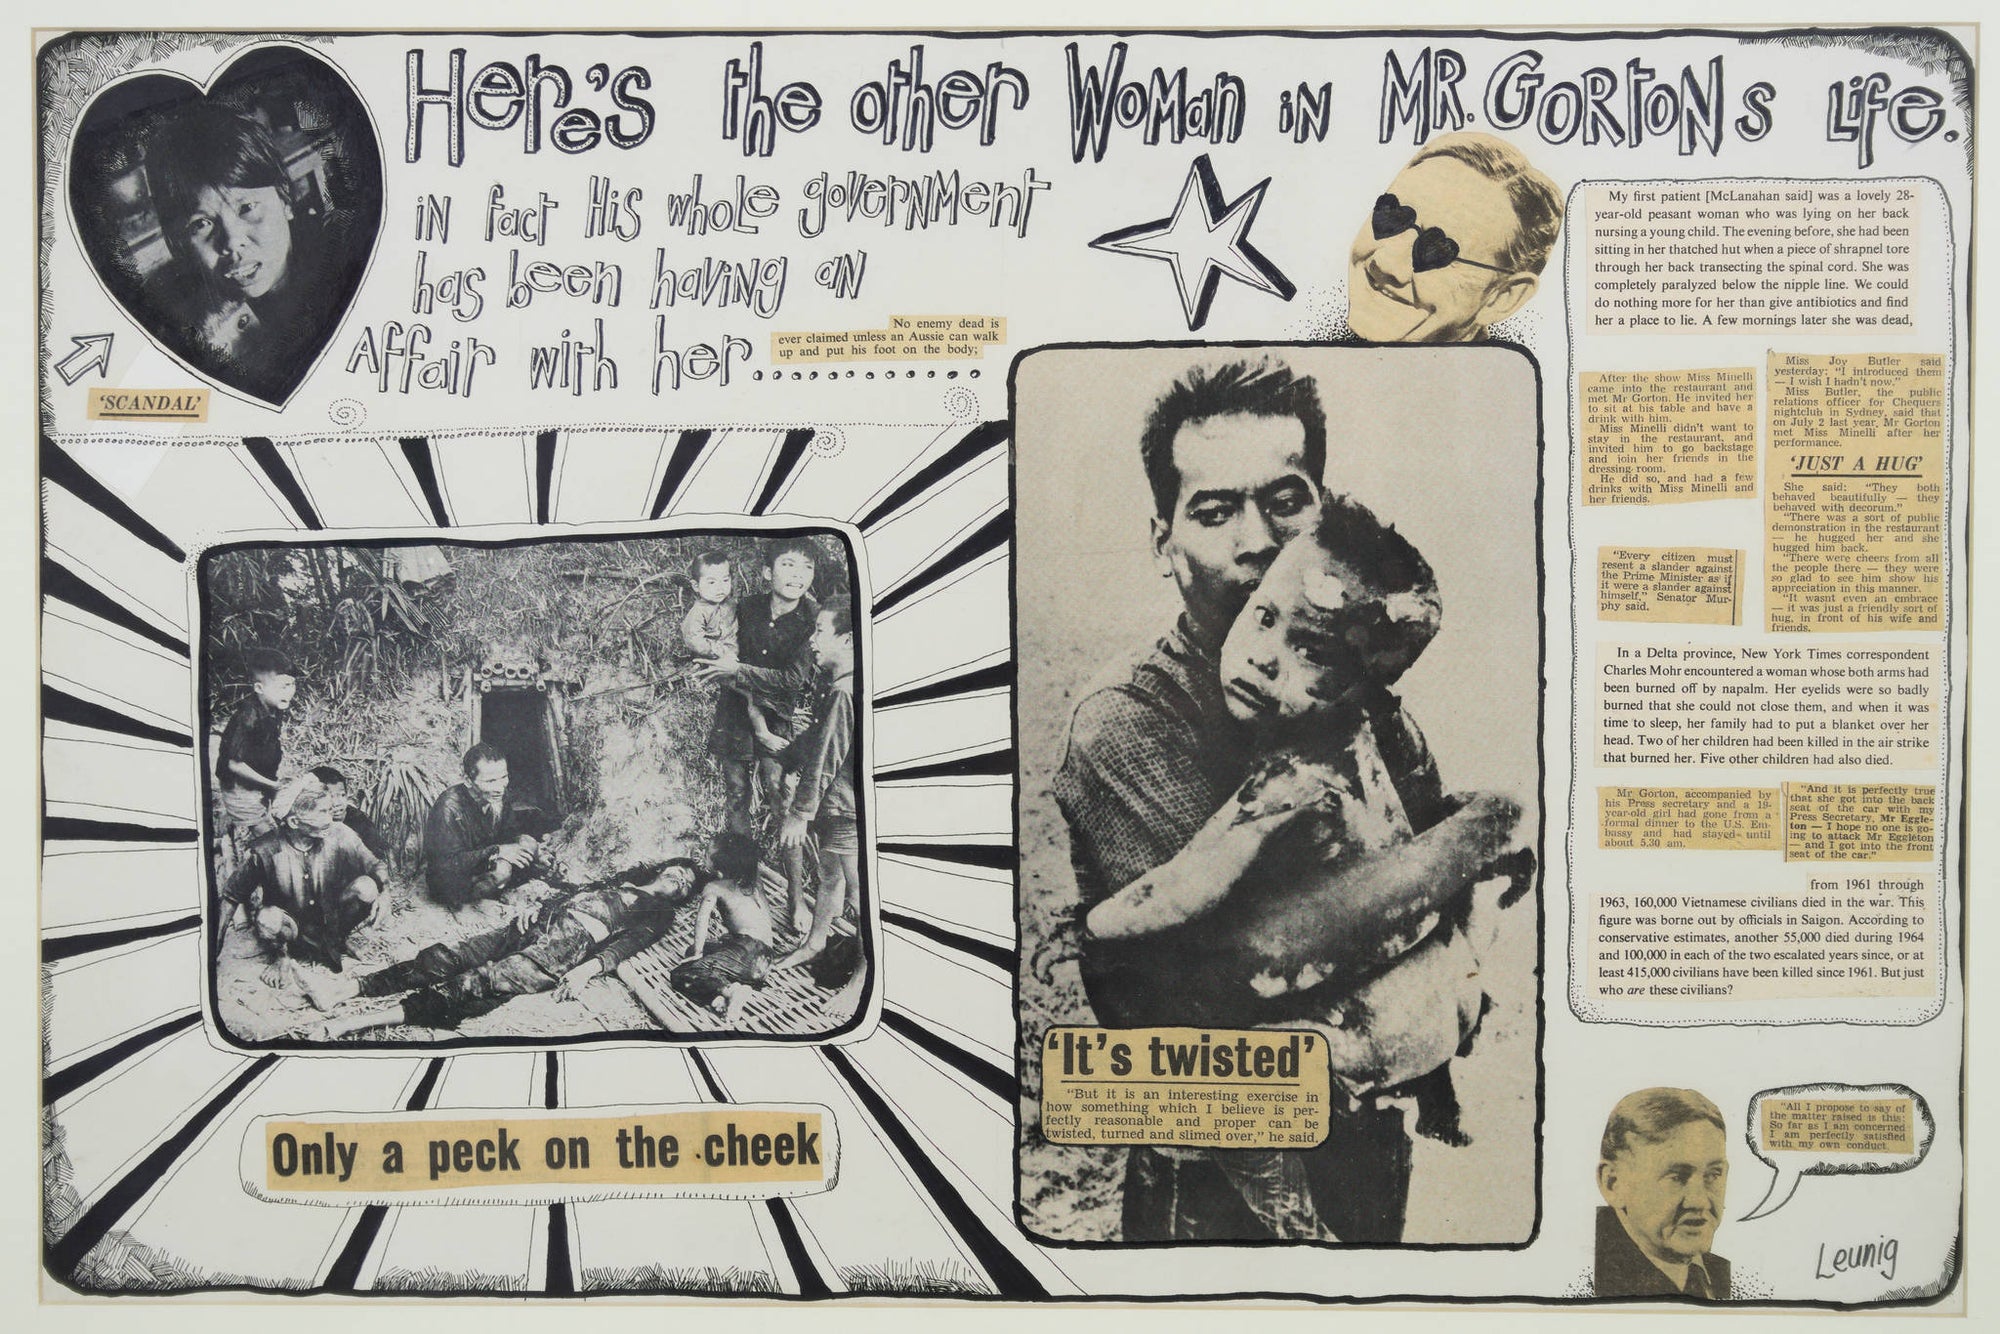 Here's the other Woman in MR. GORTONS Life.
in fact His whole government
has been having an
Affair with her.............
No enemy dead is
ever claimed unless an Aussie can walk
up and put his foot on the body;
'SCANDAL'
Only a peck on the cheek
'It's twisted'
"But it is an interesting exercise in
how something which I believe is per-
fectly reasonable and proper can be
twisted, turned and slimed over," he said.
My first patient [McLanahan said] was a lovely 28-
year-old peasant woman who was lying on her back
nursing a young child. The evening before, she had been
sitting in her thatched hut when a piece of shrapnel tore
through her back transecting the spinal cord. She was
completely paralyzed below the nipple line. We could
do nothing more for her than give antibiotics and find
her a place to lie. A few mornings later she was dead,
After the show Miss Minelli
came into the restaurant and
met Mr Gorton. He invited her
to sit at his table and have a
drink with him.
Miss Minelli didn't want to
stay in the restaurant, and
invited him to go backstage
and join her friends in the
dressing room.
He did so, and had a few
drinks with Miss Minelli and
her friends.
Miss Joy Butler said
yesterday: "I introduced them
— I wish I hadn't now."
Miss Butler, the public
relations officer for Chequers
nightclub in Sydney, said that
on July 2 last year, Mr Gorton
met Miss Minelli after her
performance.
'JUST A HUG'
She said: "They both
behaved beautifully — they
behaved with decorum."
"There was a sort of public
demonstration in the restaurant
— he hugged her and she
hugged him back.
"There were cheers from all
the people there — they were
so glad to see him show his
appreciation in this manner.
"It wasnt even an embrace
— it was just a friendly sort of
hug, in front of his wife and
friends.
"Every citizen must
resent a slander against
the Prime Minister as if
it were a slander against
himself," Senator Mur-
phy said.
In a Delta province, New York Times correspondent
Charles Mohr encountered a woman whose both arms had
been burned off by napalm. Her eyelids were so badly
burned that she could not close them, and when it was
time to sleep, her family had to put a blanket over her
head. Two of her children had been killed in the air strike
that burned her. Five other children had also died.
Mr Gorton, accompanied by
his Press secretary and a 19-
year-old girl had gone from a
formal dinner to the U.S. Em-
bassy and had stayed until
about 5.30 am.
"And it is perfectly true
that she got into the back
seat of the car with my
Press Secretary, Mr Eggle-
ton — I hope no one is go-
ing to attack Mr Eggleton
— and I got into the front
seat of the car."
from 1961 through
1963, 160,000 Vietnamese civilians died in the war. This
figure was borne out by officials in Saigon. According to
conservative estimates, another 55,000 died during 1964
and 100,000 in each of the two escalated years since, or at
least 415,000 civilians have been killed since 1961. But just
who are these civilians?
"All I propose to say of
the matter raised is this:
So far as I am concerned
I am perfectly satisfied
with my own conduct.
Leunig